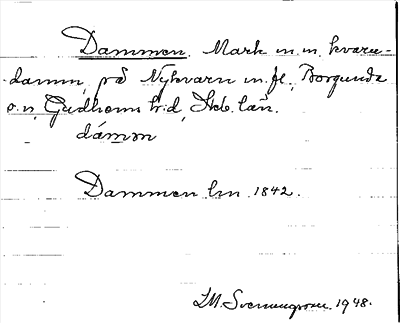 Dammen. Mark m.m. kvarn-
damm, på Nykvarn m.fl., Borgunda
s:n, Gudhems h:d, Skb. län.
dámǝn
Dammen lm 1842.
IM. Svennungsson. 1948.